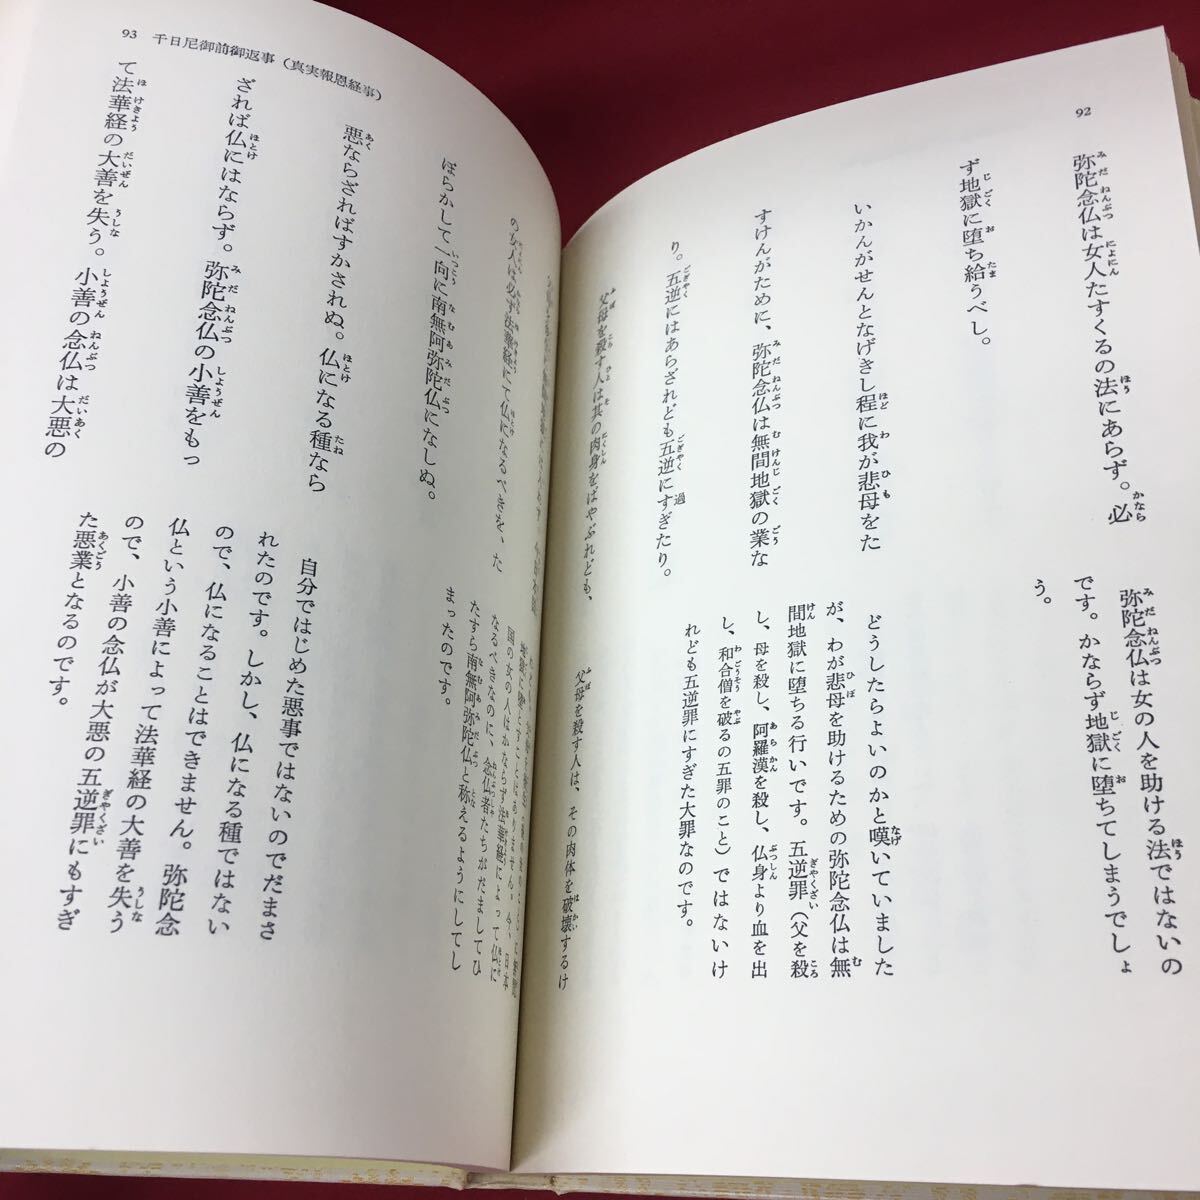 92
弥陀念仏は女人たすくるの法にあらず。必
ず地獄に堕ち給うべし。
いかんがせんとなげきし程に我が悲母をた
すけんがために、弥陀念仏は無間地獄の業な
り。五逆にはあらざれども五逆にすぎたり。
父母を殺す人は其の肉身をばやぶれども、
弥陀念仏は女の人を助ける法ではないの
です。かならず地獄に堕ちてしまうでしょ
う。
どうしたらよいのかと嘆いていました
が、わが悲母を助けるための弥陀念仏は無
間地獄に堕ちる行いです。五逆罪（父を殺
し、母を殺し、阿羅漢を殺し、仏身より血を出
し、和合僧を破るの五罪のこと）ではないけ
れども五逆罪にすぎた大罪なのです。
父母を殺す人は、その肉体を破壊するけ
93 千日尼御前御返事（真実報恩経事）
の女人は必ず法華経にて仏になるべきを、た
ぼらかして一向に南無阿弥陀仏になしぬ。
悪ならざればすかされぬ。仏になる種なら
ざれば仏にはならず。弥陀念仏の小善をもっ
て法華経の大善を失う。小善の念仏は大悪の
地獄に堕とすことはありません。今、日本
国の女の人はかならず法華経によって仏に
なるべきなのに、念仏者たちがだましてひ
たすら南無阿弥陀仏と称えるようにしてし
まったのです。
自分ではじめた悪事ではないのでだまさ
れたのです。しかし、仏になる種ではない
ので、仏になることはできません。弥陀念
仏という小善によって法華経の大善を失う
ので、小善の念仏が大悪の五逆罪にもすぎ
た悪業となるのです。